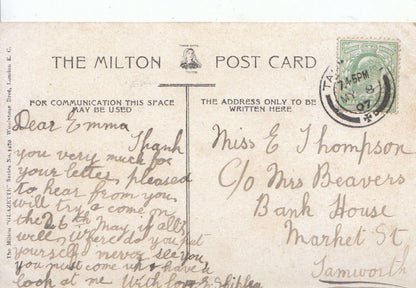 THE MILTON POST CARD
FOR COMMUNICATION THIS SPACE
MAY BE USED
THE ADDRESS ONLY TO BE
WRITTEN HERE
The Milton "GLAZETTE" Series No. Woodstone Bros, London E.C.
Dear Emma
Thank
you very much for
your letter, pleased
to hear from you
will try & come on
the 26th May if all's
well, where do you put
yourself never see you
you must come up & have a
look at me With love
Miss E Thompson
C/o Mrs Beavers
Bank House
Market St,
Tamworth
TAM
7.45PM
MY 8
07